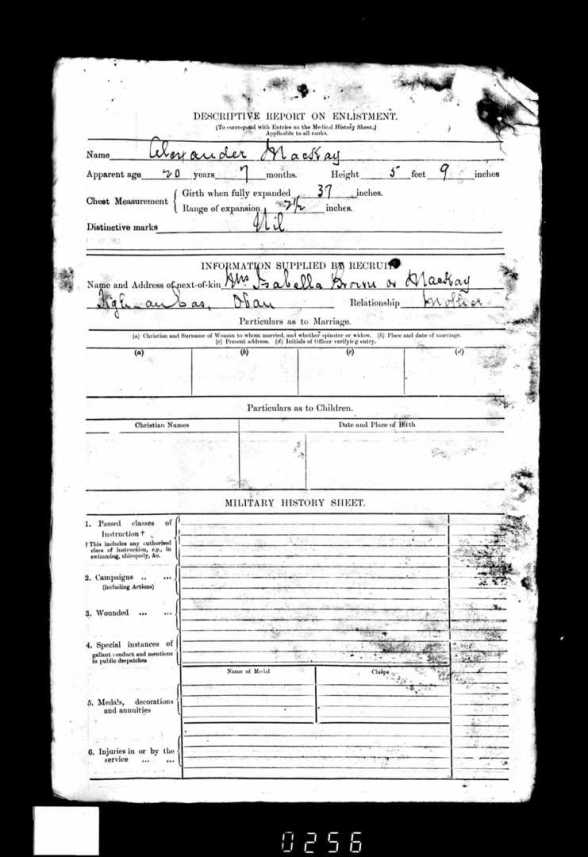 DESCRIPTIVE REPORT ON ENLISTMENT.
(To correspond with Entries on the Medical History Sheet.)
Applicable to all ranks.
Name Alexander MacKay
Apparent age 20 years 7 months. Height 5 feet 9 inches
Chest Measurement { Girth when fully expanded 37 inches.
Range of expansion 2½ inches.
Distinctive marks Nil
INFORMATION SUPPLIED BY RECRUIT
Name and Address of next-of-kin Mrs Isabella Brown or MacKay
Oban Relationship Mother
Particulars as to Marriage.
(a) Christian and Surname of Woman to whom married, and whether spinster or widow. (b) Place and date of marriage.
(c) Present address. (d) Initials of Officer verifying entry.
(a) (b) (c) (d)
Particulars as to Children.
Christian Names Date and Place of Birth
MILITARY HISTORY SHEET.
1. Passed classes of
Instruction †
† This includes any authorised
class of instruction, e.g., in
swimming, chiropody, &c.
2. Campaigns .. ...
(including Actions)
3. Wounded ... ...
4. Special instances of
gallant conduct and mentions
in public despatches
Name of Medal Clasps
5. Medals, decorations
and annuities
6. Injuries in or by the
service ... ...
0256